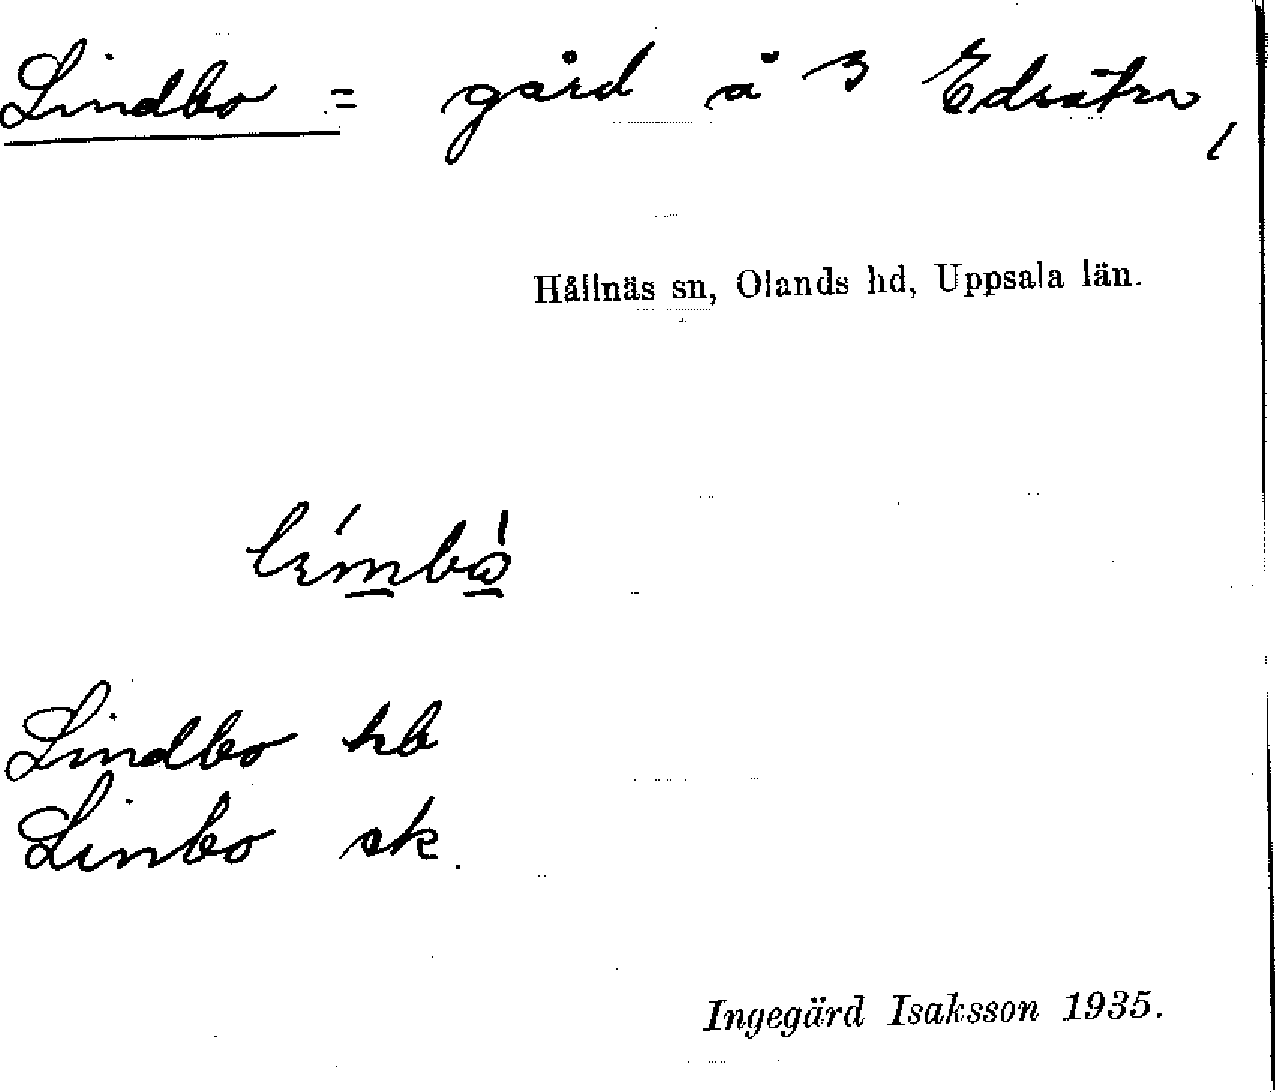 Lindbo = gård å 3 Edsätra,
Hållnäs sn, Olands hd, Uppsala län.
Lindbo hb
Linbo sk.
Ingegärd Isaksson 1935.